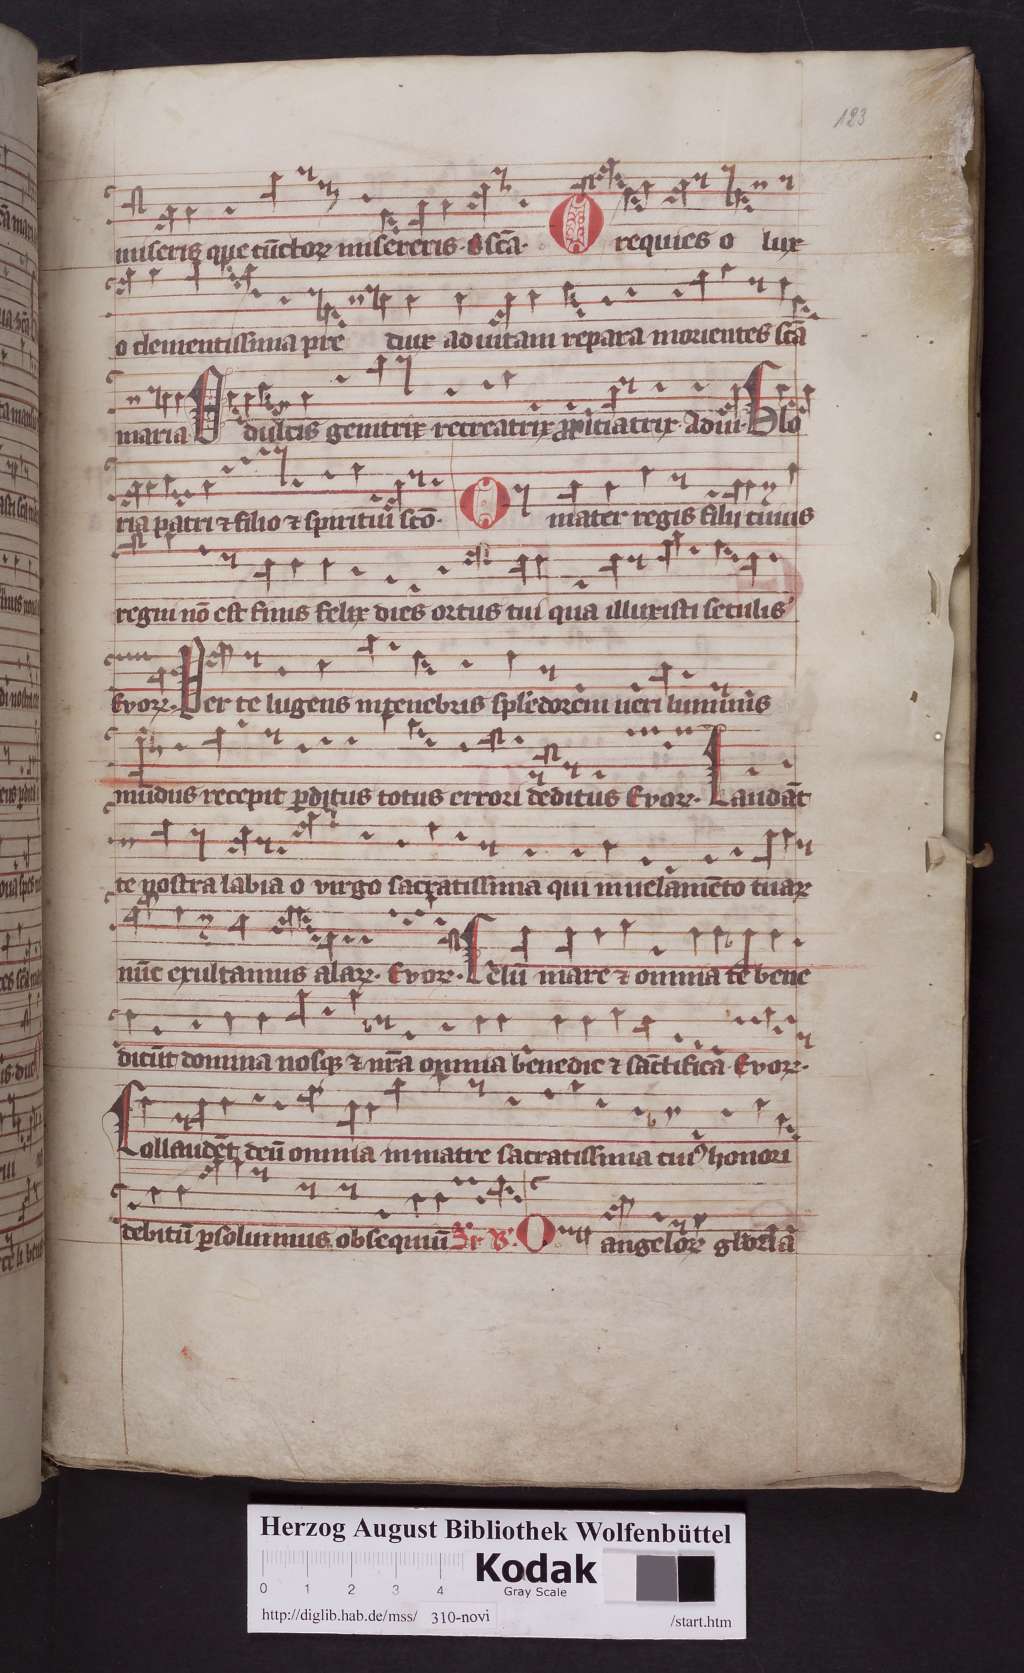 123
miseris que cūctoꝝ misereris. O scā. O requies o lux
o clementissima pre dux ad uitam repara morientes scā
maria V dulcis genitrix recreatrix ꝓpiciatrix. ad ui. Glo
ria patri ⁊ filio ⁊ spiritui scō. O mater regis filij cuius
regni nō est finis felix dies ortus tui qua illuxisti seculis
Evoꝝ. Per te lugens in tenebris splēdorem ueri luminis
mūdus recepit ꝑditus totus errori deditus Evoꝝ. Laudāt
te nostra labia o virgo sacratissima qui in uelamēto tuaꝝ
nūc exultamus alaꝝ. Evoꝝ. Celū mare ⁊ omnia te bene
dicūt domina nosqꝫ ⁊ nr̄a omnia benedic ⁊ sāctifica. Evoꝝ.
Collaudēt deū omnia in matre sacratissima cuiꝰ honori
debitū ꝑsoluimus obsequiū O angeloꝝ gloriā
Herzog August Bibliothek Wolfenbüttel
Kodak
Gray Scale
0 1 2 3 4
http://diglib.hab.de/mss/ 310-novi /start.htm